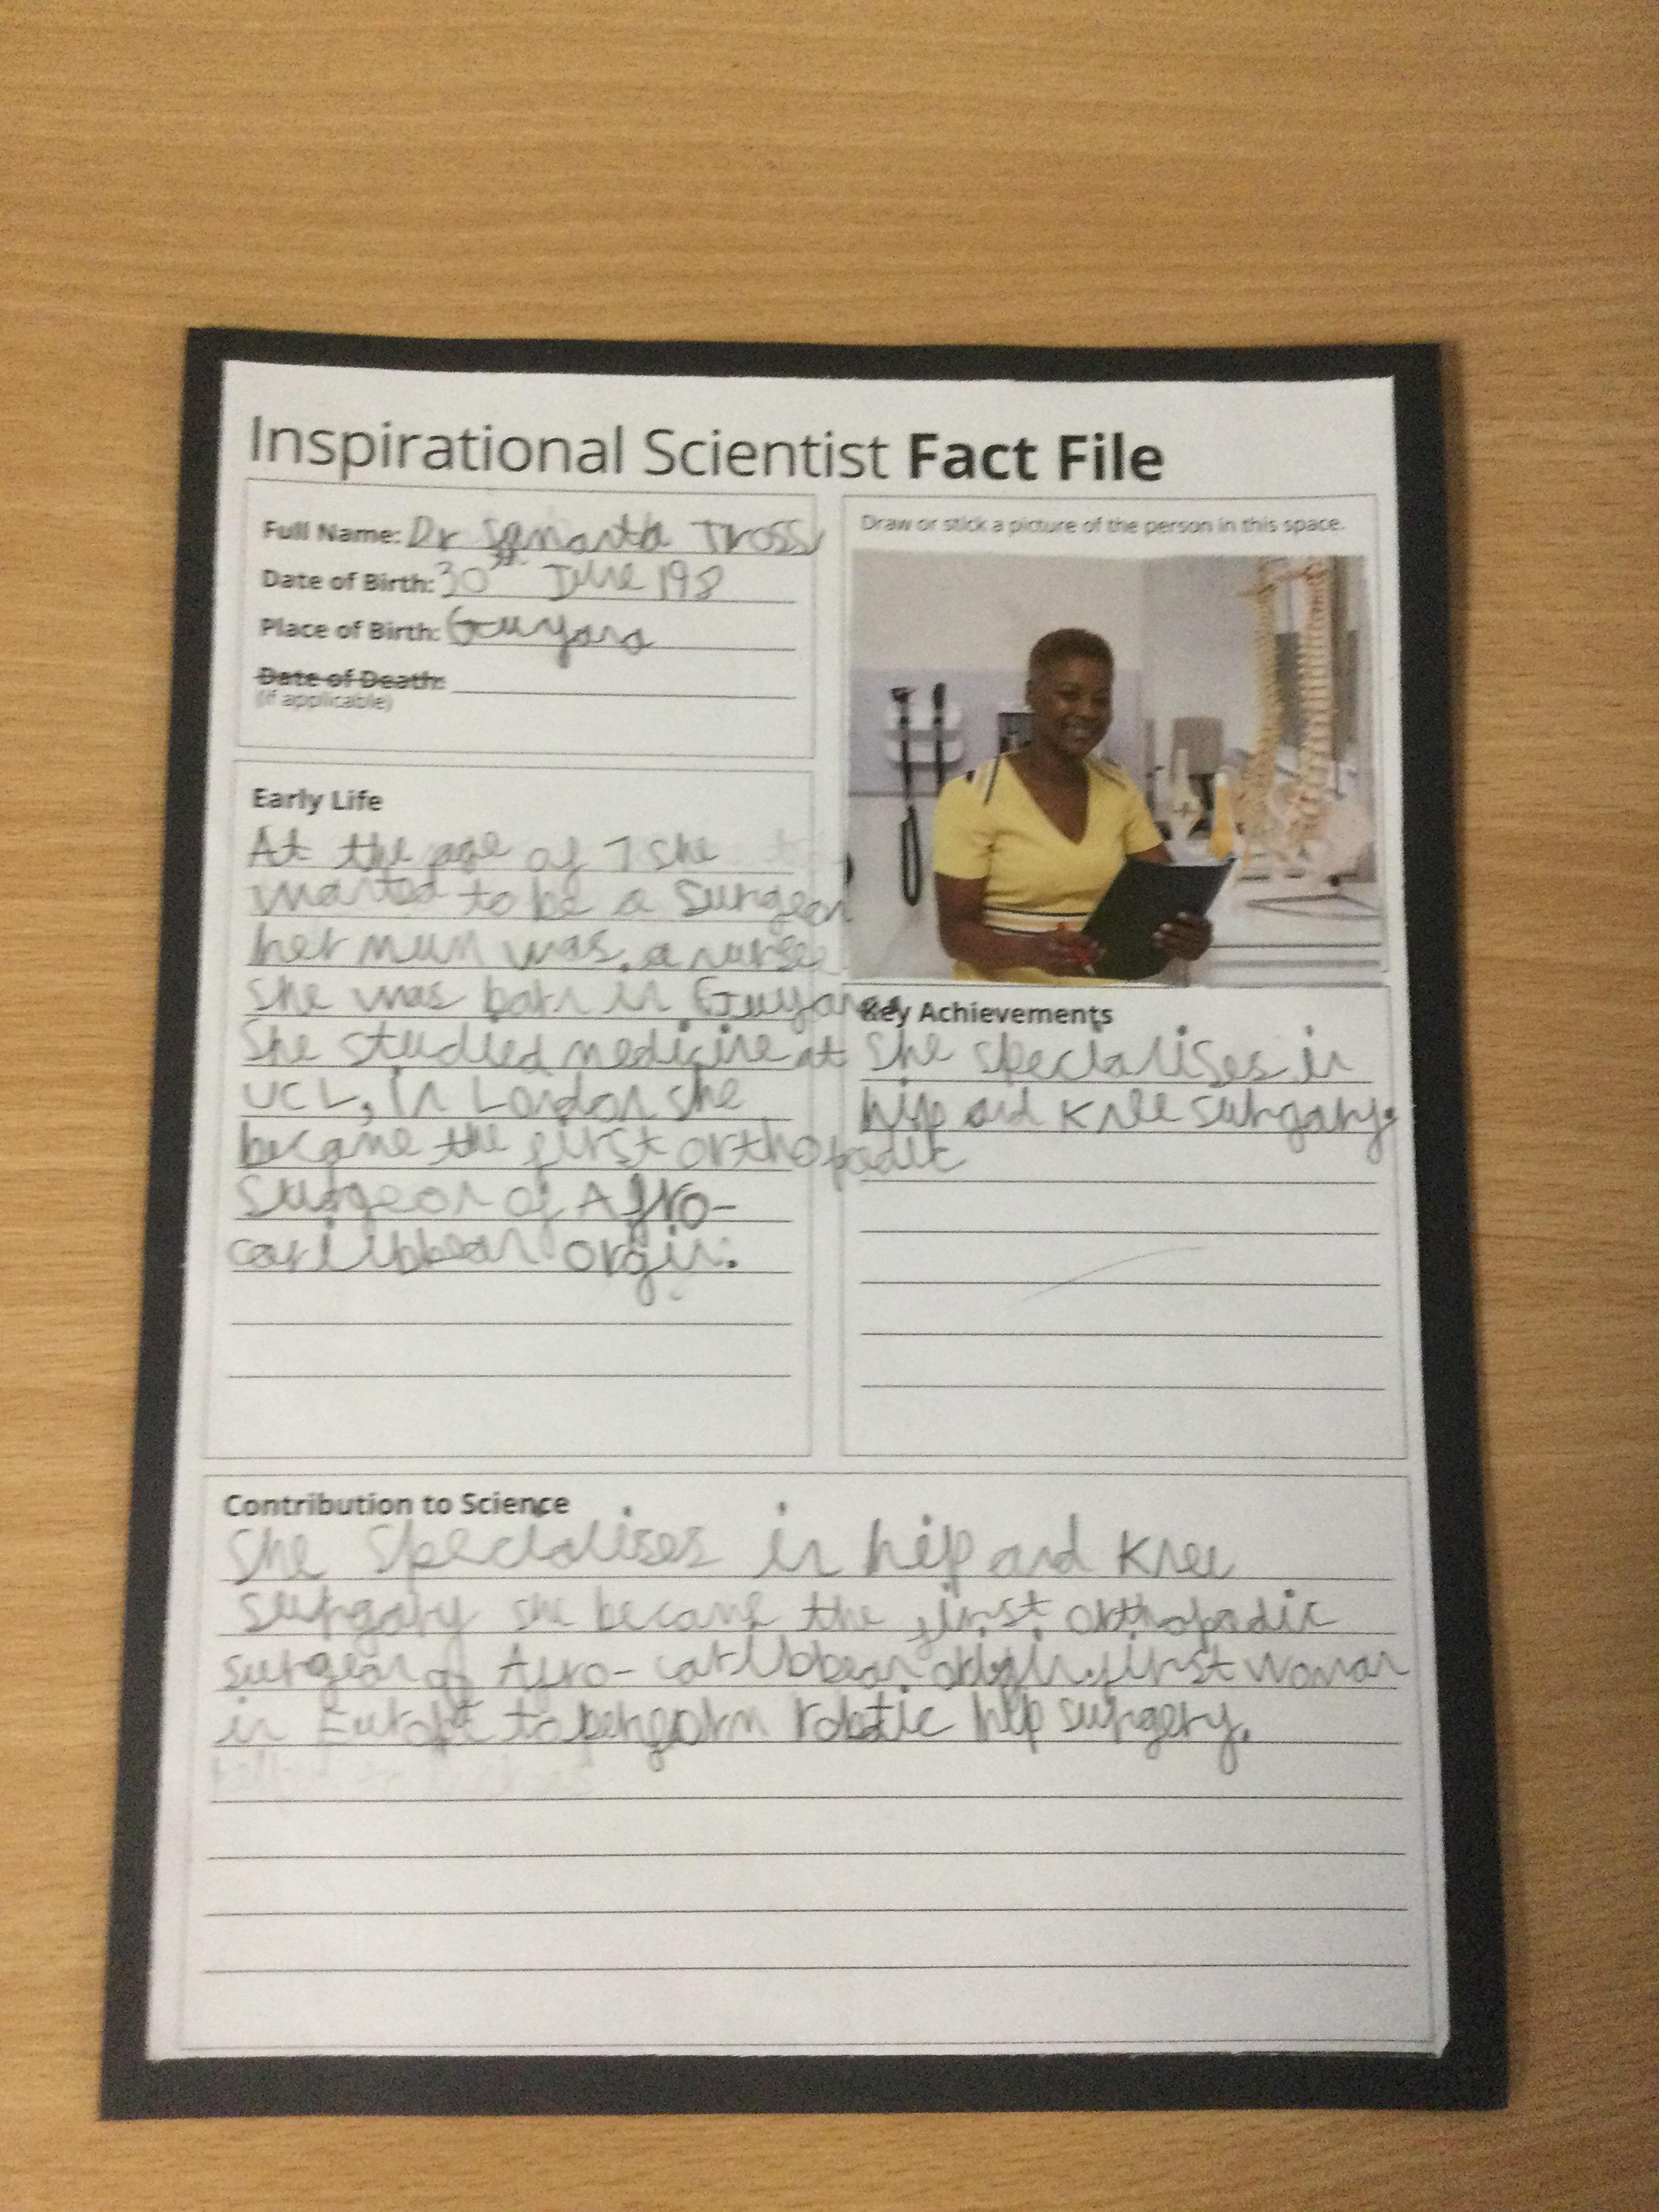 Inspirational Scientist Fact File
Full Name: Dr Samanta Tross
Date of Birth: 30th June 198
Place of Birth: Guyana
Date of Death:
(if applicable)
Draw or stick a picture of the person in this space.
Early Life
At the age of 7 she
wanted to be a Surgeon
her mum was a nurse
She was born in Guyana
She studied medicine at
UCL, in London she
became the first orthopadic
Surgeon of Afro-
caribbean orgin.
Key Achievements
She specialises in
hip and knee surgary.
Contribution to Science
She specialises in hip and Knee
surgary she became the first orthopadic
surgeon of Afro-caribbean origin. first woman
in Europe to perform robotic hip surgery.